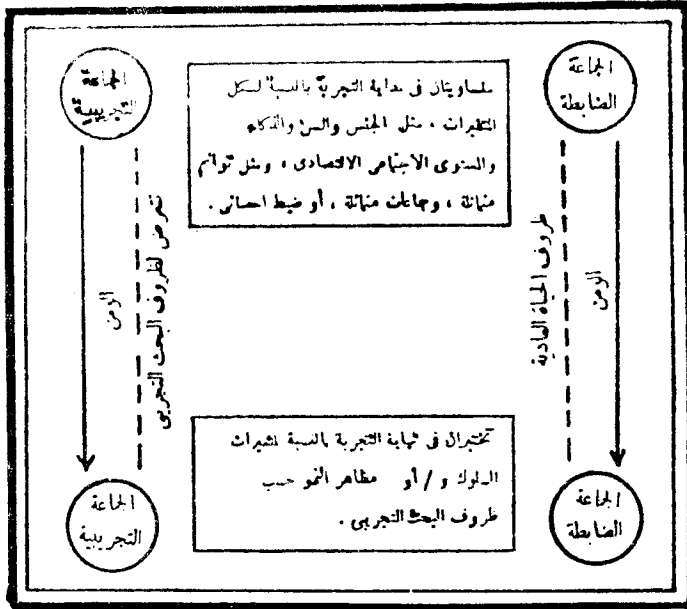 الجماعة
الضابطة
متساويتان فى بداية التجربة بالنسبة لكل
المتغيرات ، مثل الجنس والسن والذكاء
والمستوى الاجتماعى الاقتصادى ، ومثل توائم
متماثلة ، وجماعات متماثلة ، أو ضبط احصائى .
الجماعة
التجريبية
ظروف الحياة العادية
الزمن
تتعرض لظروف البحث التجريبى
الزمن
الجماعة
الضابطة
تختبران فى نهاية التجربة بالنسبة لمتغيرات
السلوك و / أو مظاهر النمو حسب
ظروف البحث التجريبى .
الجماعة
التجريبية